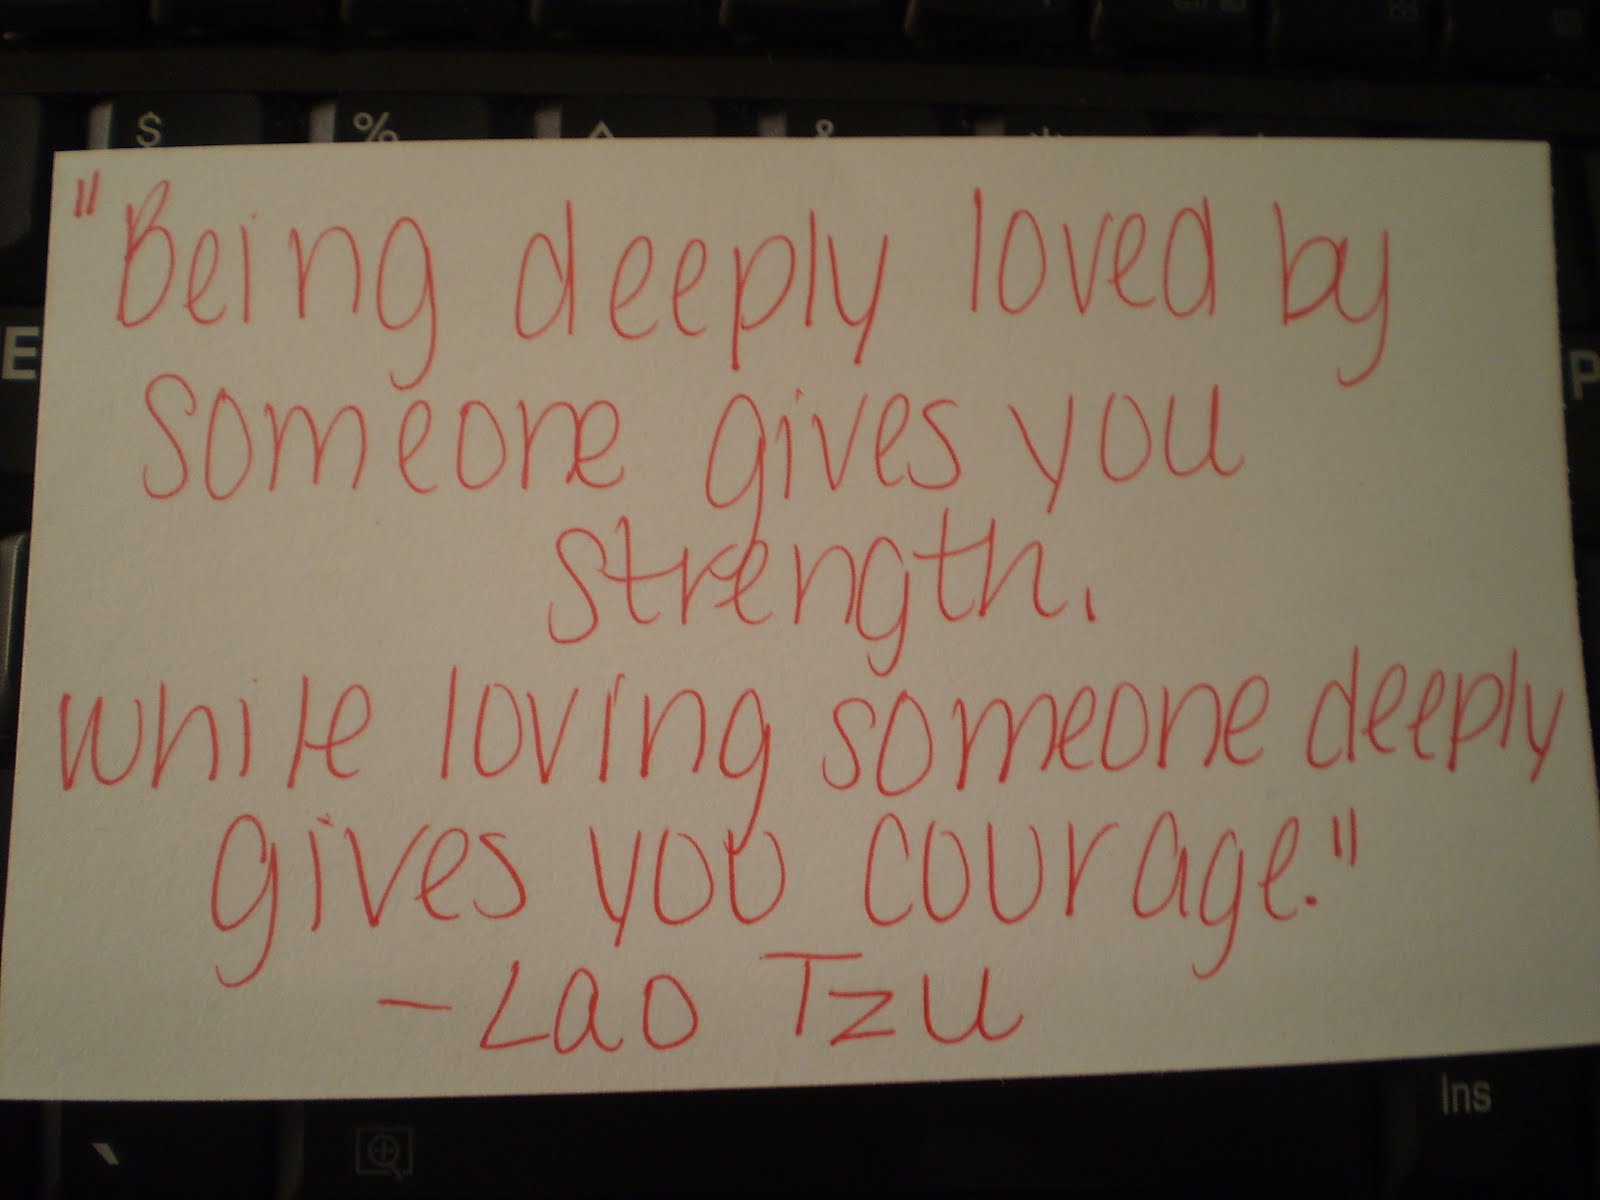 $ % ^ &
"Being deeply loved by
E
P
someone gives you
strength.
while loving someone deeply
gives you courage."
-Lao Tzu
Ins
`